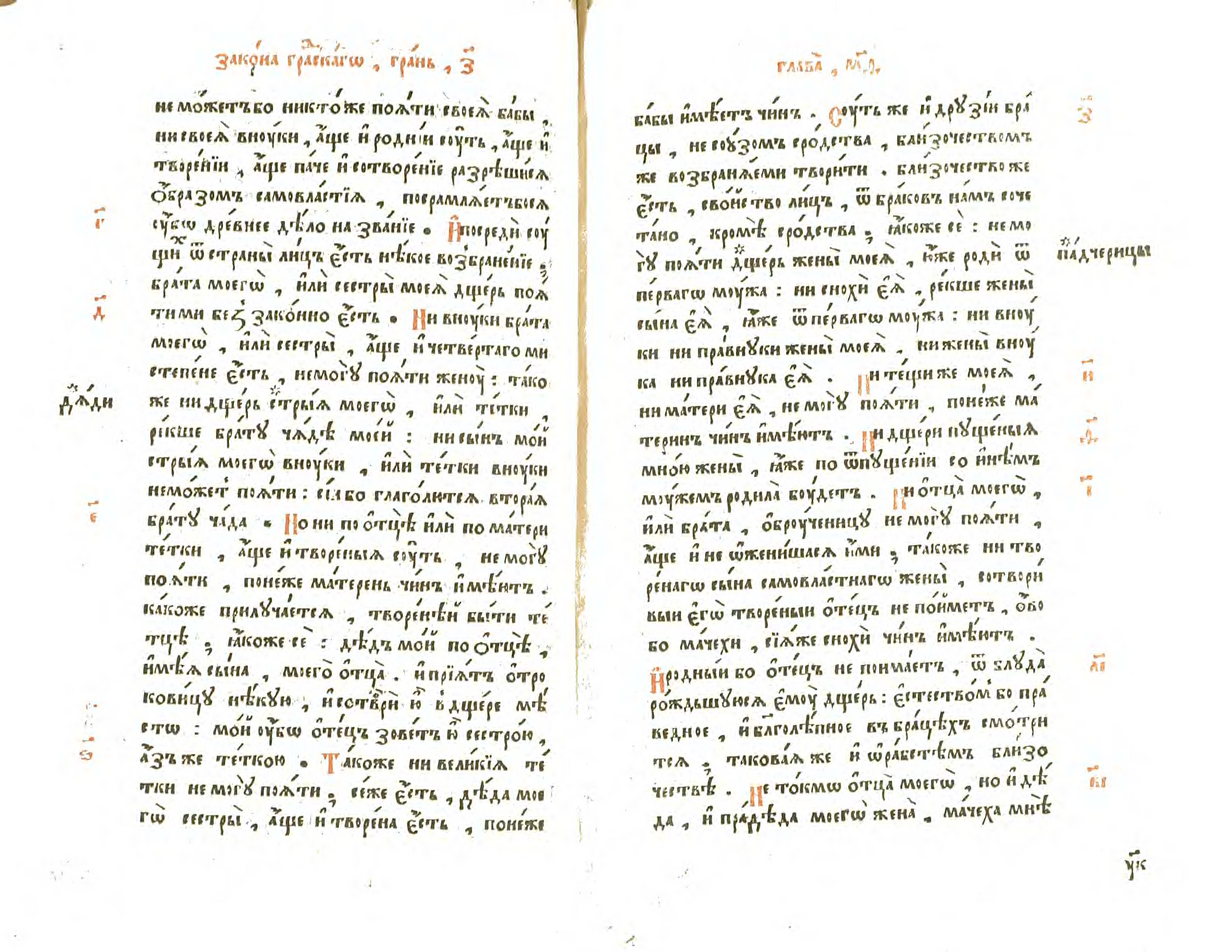 Зако́на гра́дскагѡ , гра́нь , з҃
не мо́жетъ бо никто́же поѧ́ти своеѧ̀ ба́бы ,
ни своеѧ̀ вноу́ки , а҆́ще и҆ родні́и соу́ть , а҆́ще и҆
творе́нїи , а҆́ще па́че и҆ сотворе́нїе разрѣши́сѧ
ѻ҆́бразомъ самовла́стїѧ , посрамлѧ́етъбосѧ
оу҆́бѡ дре́внее дѣ́ло на зва́нїе . И҆посредѝ соу́
щихъ ѿ страны̀ ли́цъ є҆́сть нѣ́кое возбране́нїе ,
г҃
бра́та моегѡ̀ , и҆лѝ сестры̀ моеѧ̀ дще́рь поѧ́
ти ми безꙁако́нно є҆́сть . Ни вноу́ки бра́та
д҃
моегѡ̀ , и҆лѝ сестры̀ , а҆́ще и҆ четве́ртаго ми
степе́не є҆́сть , не могу̀ поѧ́ти жено́ю : тако
же ни дще́рь стры́ѧ моегѡ̀ , и҆лѝ те́тки ,
дѧ́ди
ре́кше бра́ту ча́дѣ мое́й : ни сы́нъ мо́й
стры́ѧ моегѡ̀ вноу́ки , и҆лѝ те́тки вноу́ки
не мо́жетъ поѧ́ти : сїѧ̀ бо глаго́литсѧ втора́ѧ
бра́ту ча́да . Но ни по ѻ҆тцѣ̀ и҆лѝ по ма́тери
є҃
те́тки , а҆́ще и҆ творе́ныѧ соу́ть , не могу̀
поѧ́ти , поне́же ма́терень чи́нъ и҆мѣ́ютъ .
ка́коже прилуча́етсѧ , творе́нѣй бы́ти те́
тцѣ , ꙗ҆́коже сѐ : дѣ́дъ мо́й по ѻ҆тцѣ̀ ,
и҆мѣ́ѧ сы́на , моего̀ ѻ҆тца̀ . и҆ прїѧ́тъ ѻ҆тро
кови́цу нѣ́кую , и҆ сотворѝ ю҆̀ в дще́ре мѣ́
сто : мо́й оу҆́бѡ ѻ҆те́цъ зове́тъ ю҆̀ сестро́ю ,
а҆́зъ же те́ткою . Та́коже ни вели́кїѧ те́
ѕ҃
тки не могу̀ поѧ́ти , се́же є҆́сть , дѣ́да мое
гѡ̀ сестры̀ , а҆́ще и҆ творе́на є҆́сть , поне́же
глава̀ , м҃ѳ ,
ба́бы и҆мѣ́етъ чи́нъ . Соу́ть же и҆ друзі́и бра́
з҃
цы , не соу́зомъ сро́дства , бли́зочествомъ
же возбранѧ́еми твори́ти . бли́зочество же
є҆́сть , сво́йство ли́цъ , ѿ бра́ковъ на́мъ соче
та́но , кромѣ̀ сро́дства , ꙗ҆́коже сѐ : не мо
гу̀ поѧ́ти дще́рь жены̀ моеѧ̀ , ю҆́же родѝ ѿ
па́дчерицы
пе́рвагѡ моу́жа : ни снохѝ є҆ѧ̀ , ре́кше жены̀
сы́на є҆ѧ̀ , ꙗ҆́же ѿ пе́рвагѡ моу́жа : ни вноу́
ки ни пра́внуки жены̀ моеѧ̀ , ни жены̀ вноу́
ка ни пра́внука є҆ѧ̀ . Ни те́щи же моеѧ̀ ,
и҃
ни ма́тери є҆ѧ̀ , не могу̀ поѧ́ти , поне́же ма́
теринъ чи́нъ и҆мѣ́ютъ . Ни дще́ри пуще́ныѧ
ѳ҃
мно́ю жены̀ , ꙗ҆́же по ѿпуще́нїи со и҆нѣ́мъ
моу́жемъ родила̀ боу́детъ . Ни ѻ҆тца̀ моегѡ̀ ,
і҃
и҆лѝ бра́та , ѻ҆броуче́ницу не могу̀ поѧ́ти ,
а҆́ще и҆ не ѡ҆жени́шасѧ и҆́ми , та́коже ни тво
ре́нагѡ сы́на самовла́стнагѡ жены̀ , сотвори́
выи є҆гѡ̀ творе́ныи ѻ҆те́цъ не по́йметъ , ѻ҆́во
бо ма́чехи , сїѧ́же снохѝ чи́нъ и҆мѣ́ютъ .
И҆родны́и бо ѻ҆те́цъ не пои́маетъ , ѿ блуда̀
а҃і
ро́ждьшуюсѧ є҆моу̀ дще́рь : є҆стество́мъ бо пра́
ведное , и҆ бл҃голѣ́пное въ бра́цѣхъ смо́три
тсѧ , такова́ѧ же и҆ ѡ҆ра́бстѣмъ бли́зо
че́ствѣ . Не то́кмѡ ѻ҆тца̀ моегѡ̀ , но и҆ дѣ́
в҃і
да , и҆ пра́дѣда моегѡ̀ жена̀ , ма́чеха мнѣ̀
у҃к